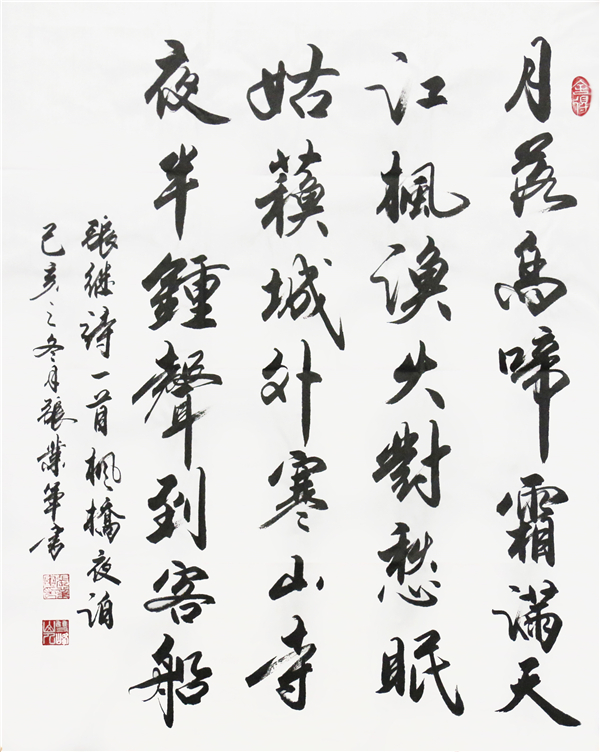 月落烏啼霜滿天
江楓漁火對愁眠
姑蘓城外寒山寺
夜半鍾聲到客船
張继詩一首楓橋夜泊
己亥之冬月張業軍书